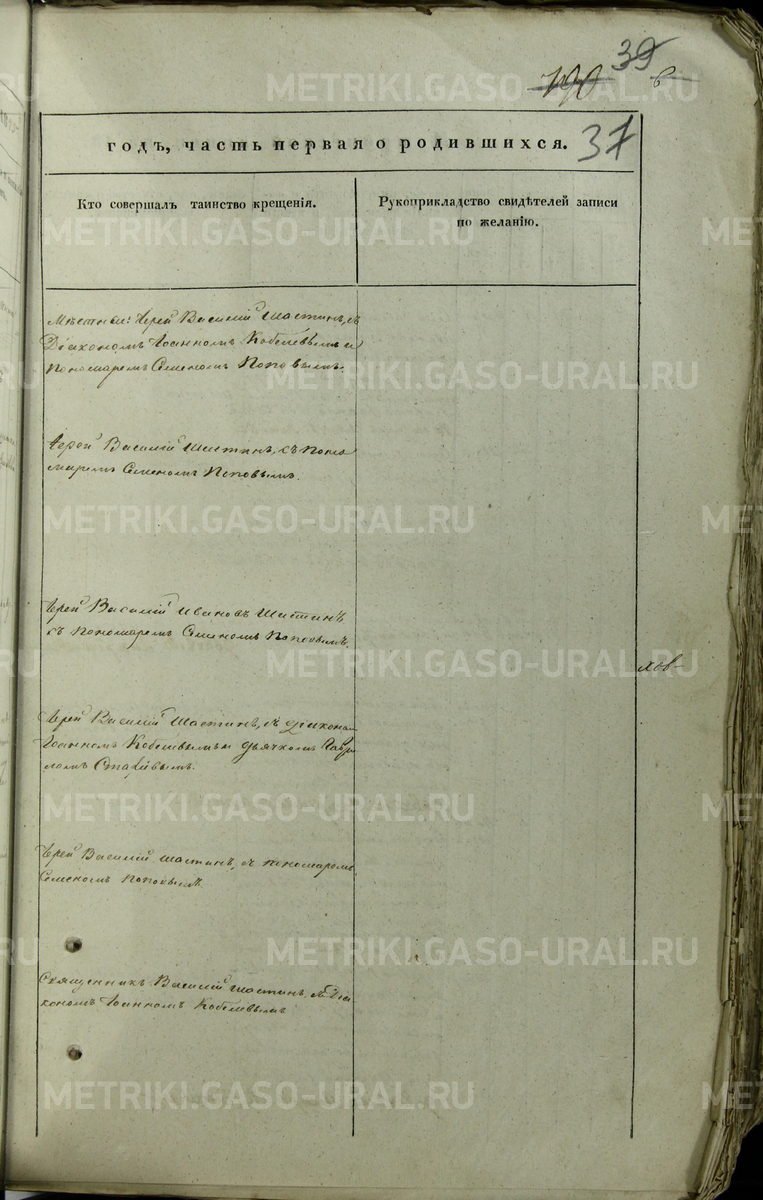 39
190
в
37
годъ, часть первая о родившихся.
Кто совершалъ таинство крещенія.
Рукоприкладство свидѣтелей записи
по желанію.
Мѣстный Іерей Василій Шастинъ, съ
Діакономъ Іоанномъ Кобелевымъ и
Пономаремъ Семеномъ Поповымъ.
Іерей Василій Шастинъ, съ Поно
маремъ Семеномъ Поповымъ.
Іерей Василій Ивановъ Шастинъ
съ Пономаремъ Семеномъ Поповымъ.
Іерей Василій Шастинъ, съ діакономъ
Іоанномъ Кобелевымъ и дьячкомъ Гаври
ломъ
Іерей Василій Шастинъ, съ пономаремъ
Семеномъ Поповымъ
Священникъ Василій Шастинъ, съ Діа
кономъ Іоанномъ Кобелевымъ
METRIKI.GASO-URAL.RU